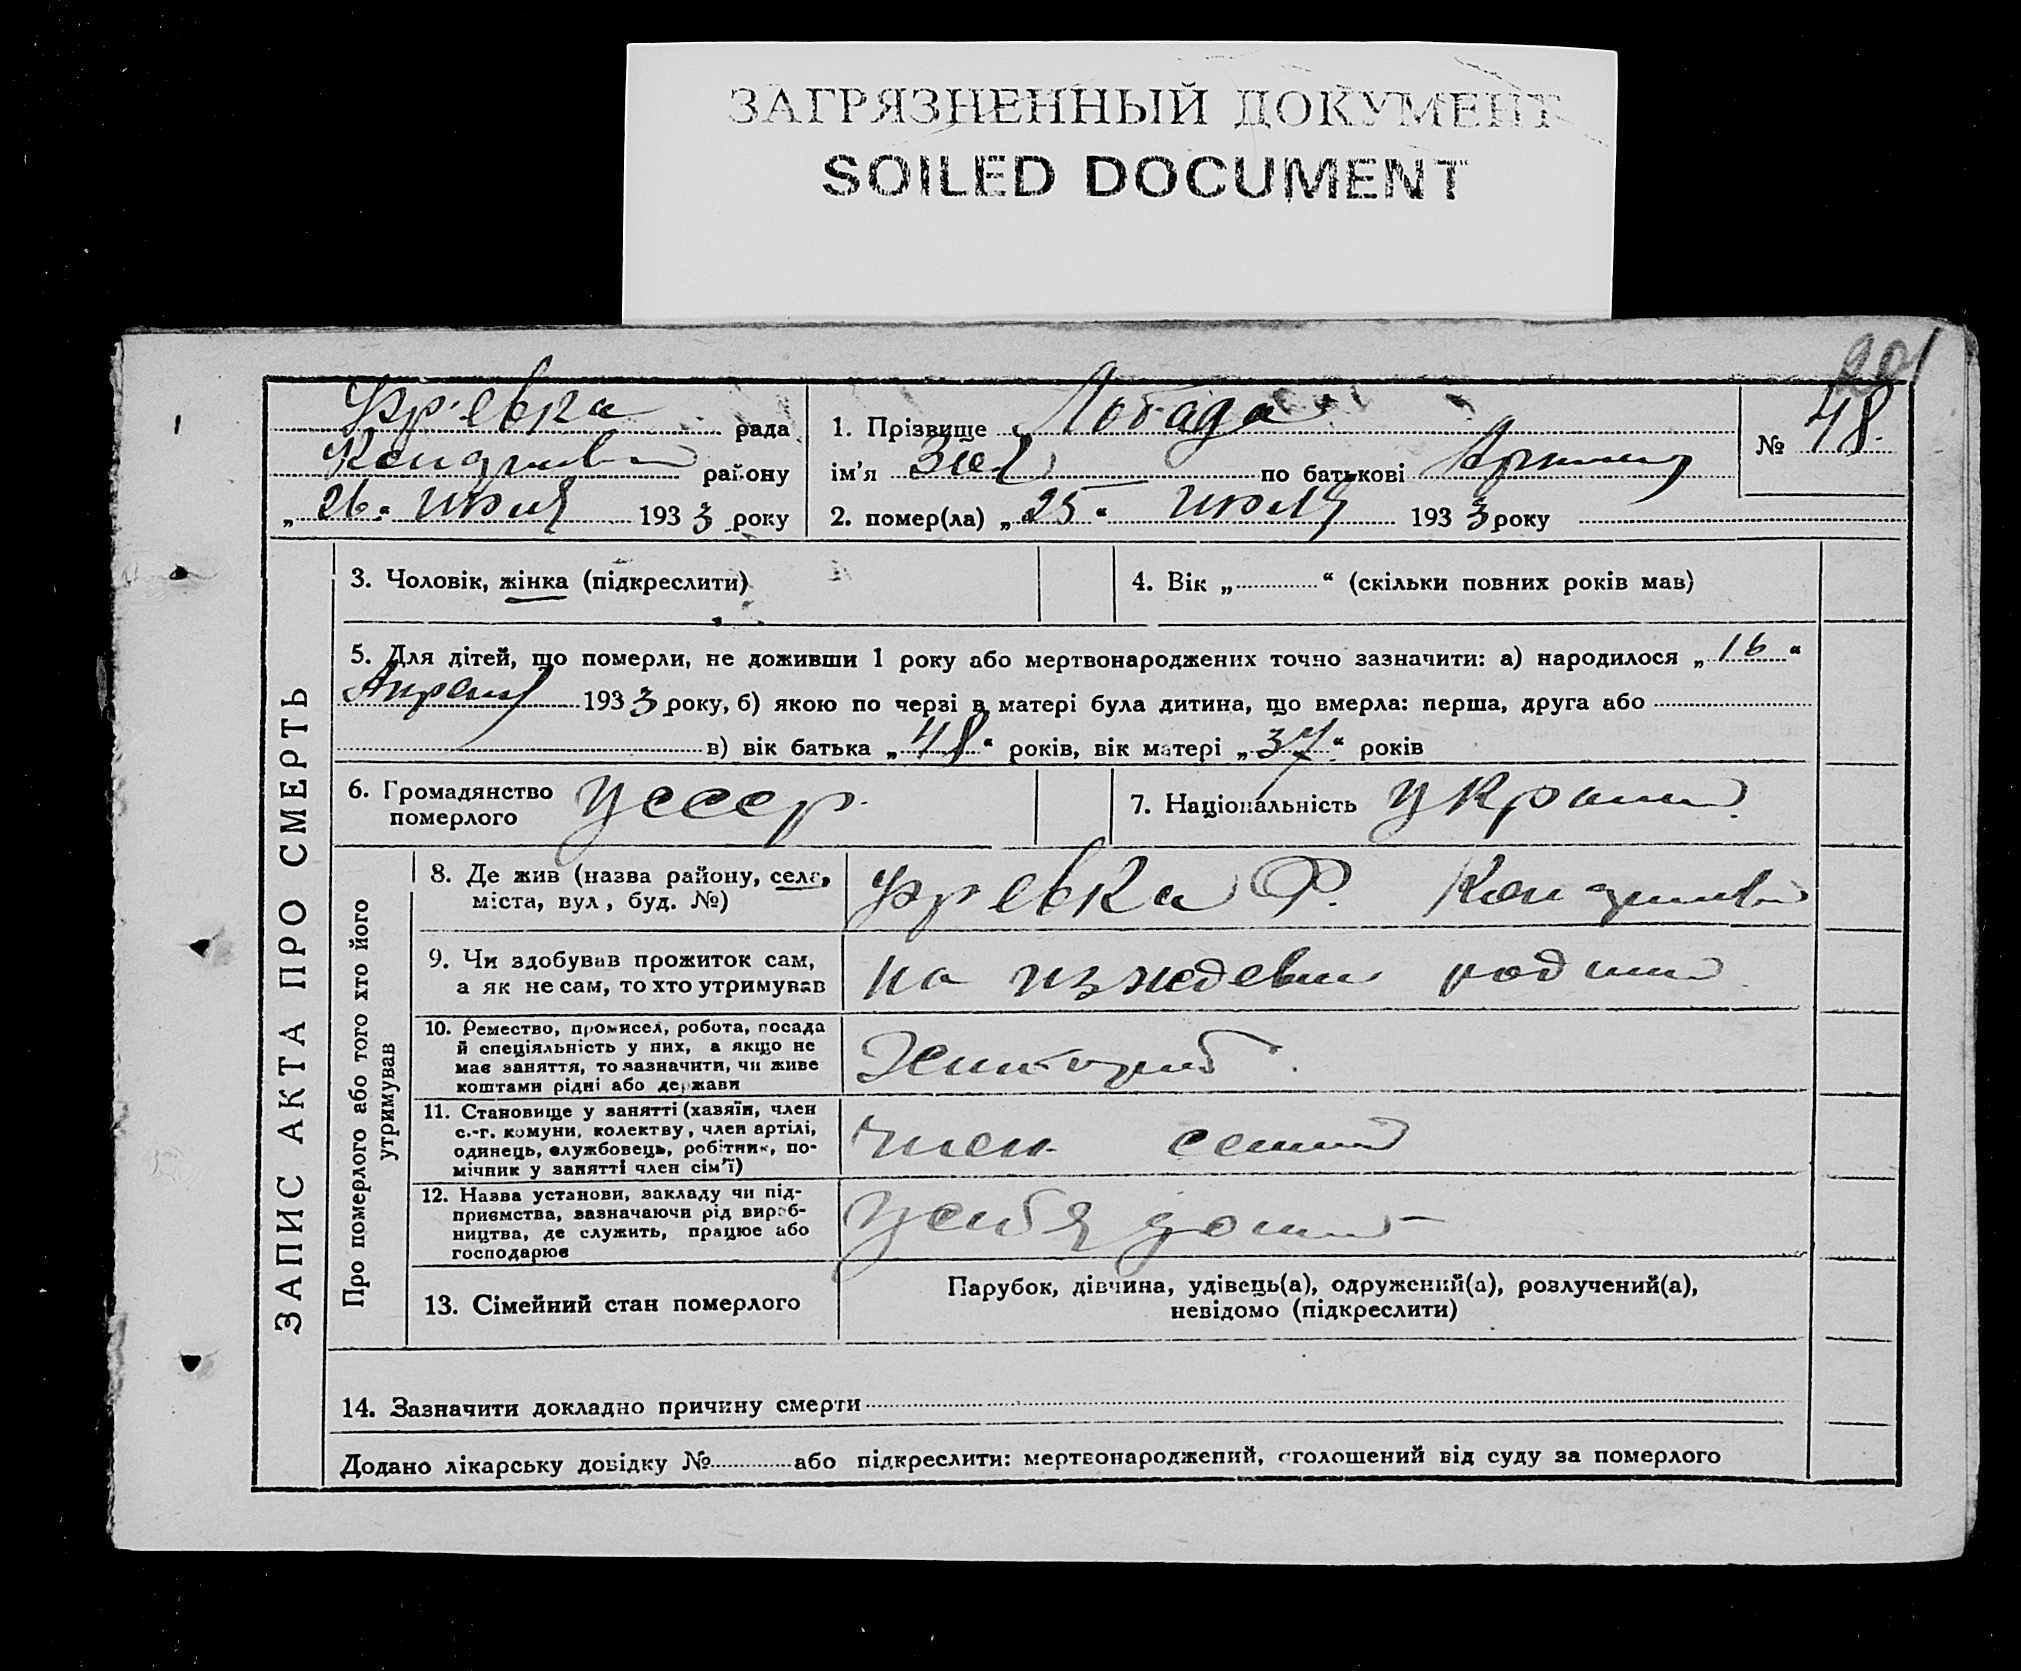 ЗАГРЯЗНЕННЫЙ ДОКУМЕНТ
SOILED DOCUMENT
201
рада
району
„26“ июля 1933 року
1. Прізвище Лобада
ім'я по батькові
№ 48
2. помер(ла) „25“ июля 1933 року
ЗАПИС АКТА ПРО СМЕРТЬ
3. Чоловік, жінка (підкреслити)
4. Вік „ “ (скільки повних років мав)
5. Для дітей, що померли, не доживши 1 року або мертвонароджених точно зазначити: а) народилося „16“
Апреля 1933 року, б) якою по черзі в матері була дитина, що вмерла: перша, друга або
в) вік батька „48“ років, вік матері „37“ років
6. Громадянство
померлого
усср
7. Національність
Про померлого або того хто його
утримував
8. Де жив (назва району, села,
міста, вул, буд. №)
9. Чи здобував прожиток сам,
а як не сам, то хто утримував
на
10. Ремество, промисел, робота, посада
й спеціяльність у них, а якщо не
має заняття, то зазначити, чи живе
коштами рідні або держави
11. Становище у занятті (хазяїн, член
с.-г. комуни, колектву, член артілі,
одинець, службовець, робітник, по-
мічник у занятті член сім'ї)
член семии
12. Назва установи, закладу чи під-
приємства, зазначаючи рід вироб-
ництва, де служить, працює або
господарює
у себя дома
13. Сімейний стан померлого
Парубок, дівчина, удівець(а), одружений(а), розлучений(а),
невідомо (підкреслити)
14. Зазначити докладно причину смерти
Додано лікарську довідку № або підкреслити: мертвонароджений, оголошений від суду за померлого